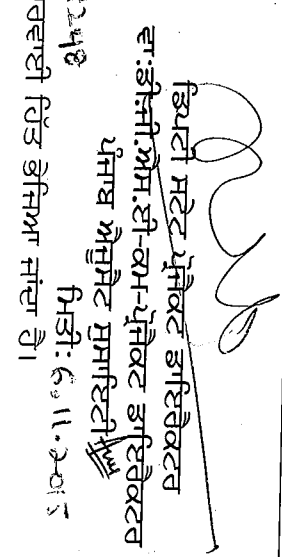 ਡਿਪਟੀ ਸਟੇਟ ਪ੍ਰੋਜੈਕਟ ਡਾਇਰੈਕਟਰ
ਵਾ:ਡੀ.ਜੀ.ਐਮ.ਟੀ-ਕਮ-ਪ੍ਰੋਜੈਕਟ ਡਾਇਰੈਕਟਰ
ਪੰਜਾਬ ਸਸਾਇਟੀ
248 ਮਿਤੀ: 6.11.2015
ਹਿੱਤ ਭੇਜਿਆ ਜਾਂਦਾ ਹੈ।